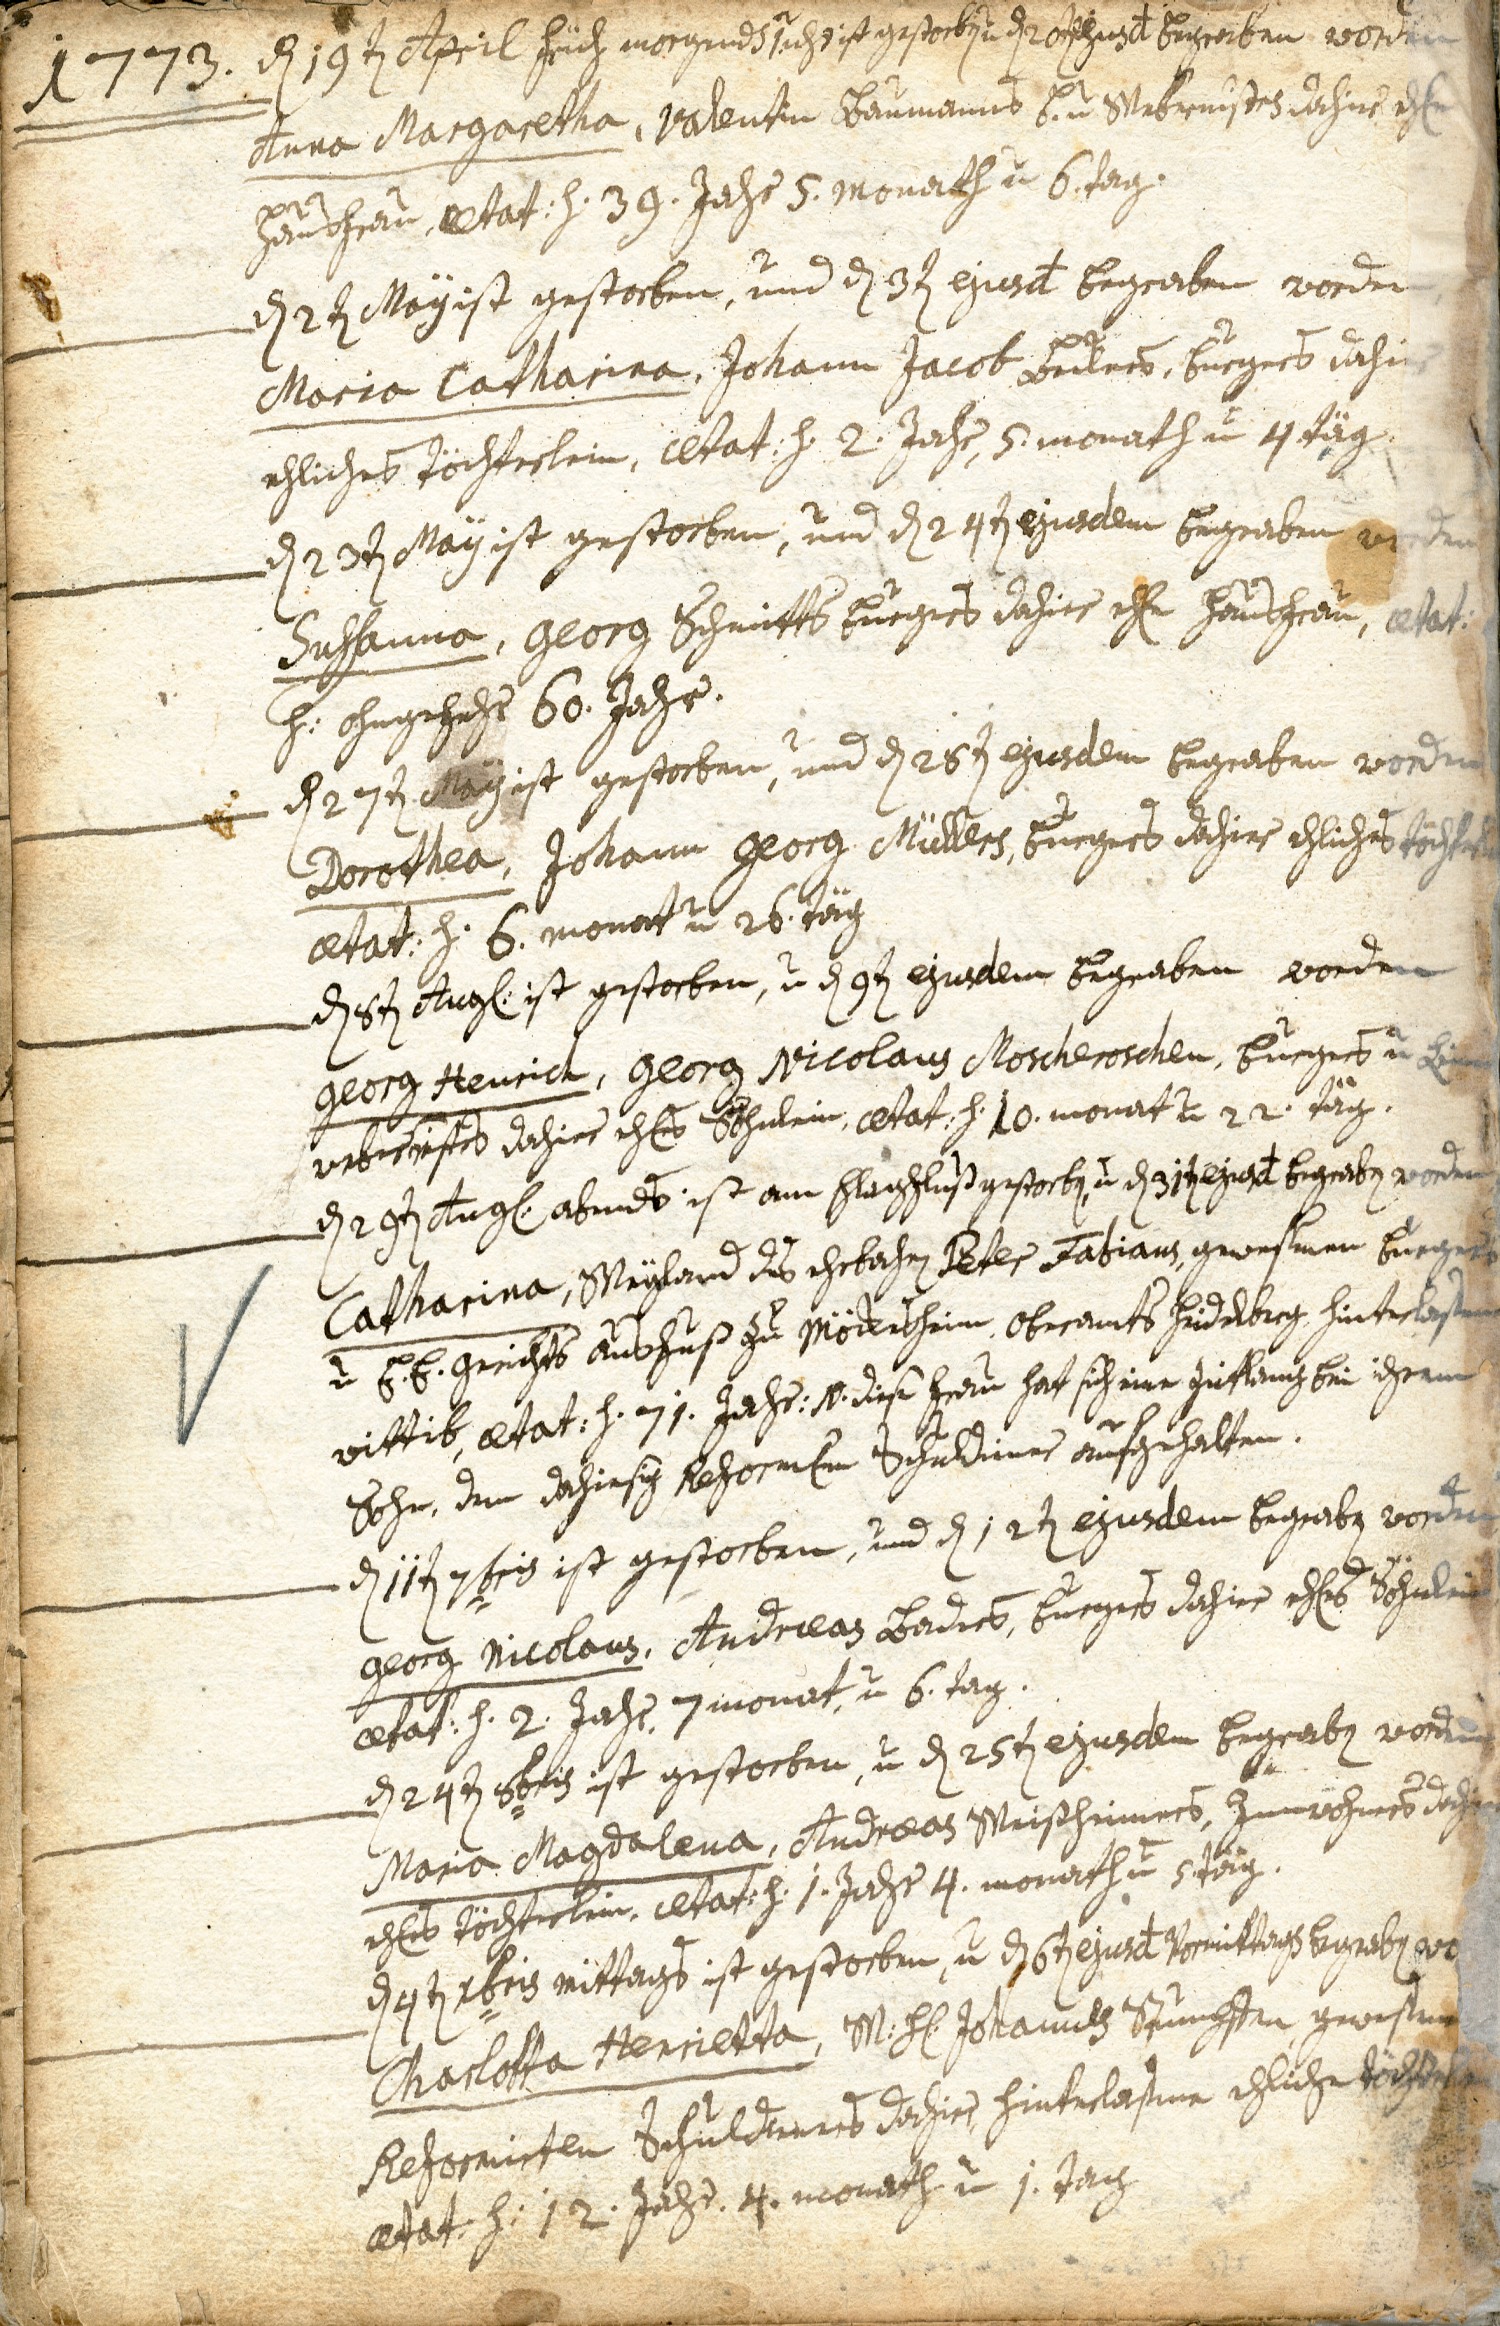 1773. d 19t April früh morgends 1 uhr ist gestorben u d 20t ejusd begraben worden
Anna Margaretha, Valentin Baumanns b. u Webermstrs dahier ehl
haußfrau, ætat: h. 39. Jahr 5. monath u 6. tag.
d 2t Maÿ ist gestorben, und d 3t ejusd begraben worden
Maria Catharina, Johann Jacob burgers dahier
ehliches töchterlein, ætat: h. 2. Jahr, 5. monath u 4 täg.
d 23t Maÿ ist gestorben, und d 24t ejusdem begraben worden
Sussanna, Georg Schmitts burgers dahier ehl haußfrau, ætat:
h: ohngefehr 60. Jahr.
d 27t Maÿ ist gestorben, und d 28t ejusdem begraben worden
Dorothea, Johann Georg Müllers, burgers dahier ehliches töchterlein
ætat: h. 6. monat u 26. täg
d 8t Augl: ist gestorben, u d 9t ejusdem begraben worden
Georg Henrich, Georg Nicolaus Moscheroschen, burgers u Leinen
webermstrs dahier ehls Söhnlein, ætat: h. 10. monat u 22. täg.
d 29t Augl. abends ist am schlagfluß gestorben, u d 31t ejusd begraben worden
Catharina, Weyland des ehrbahren Peter Fabians, gewesenen burgers
u E. E. Gerichts außfuß zu oberamts Heidelberg hinterlassene
wittib, ætat: h. 71. Jahr: N. diese frau hat sich eine zeitlang bei ihrem
Sohn, dem dahiesig Reformten Schuldiener aufgehalten.
d 11t 7bris ist gestorben, und d 12t ejusdem begraben worden
Georg Nicolaus, Andreas Baders, burgers dahier ehls Söhnlein
ætat: h. 2. Jahr, 7 monat, u 6. tag.
d 24t 8bris ist gestorben, u d 25t ejusdem begraben worden
Maria Magdalena, Andreas Inwohners dahier
ehls töchterlein, ætat: h. 1. Jahr 4. monath u 5. täg.
d 4t xbris mittags ist gestorben, u d 6t ejusd Vormittags begraben wo
Charlotta Henrietta, W: hl. Johannes gewesenen
Reformirten Schuldieners dahier, hinterlassene ehliche töchterlein
ætat: h: 12. Jahr. 4. monath u 1. tag